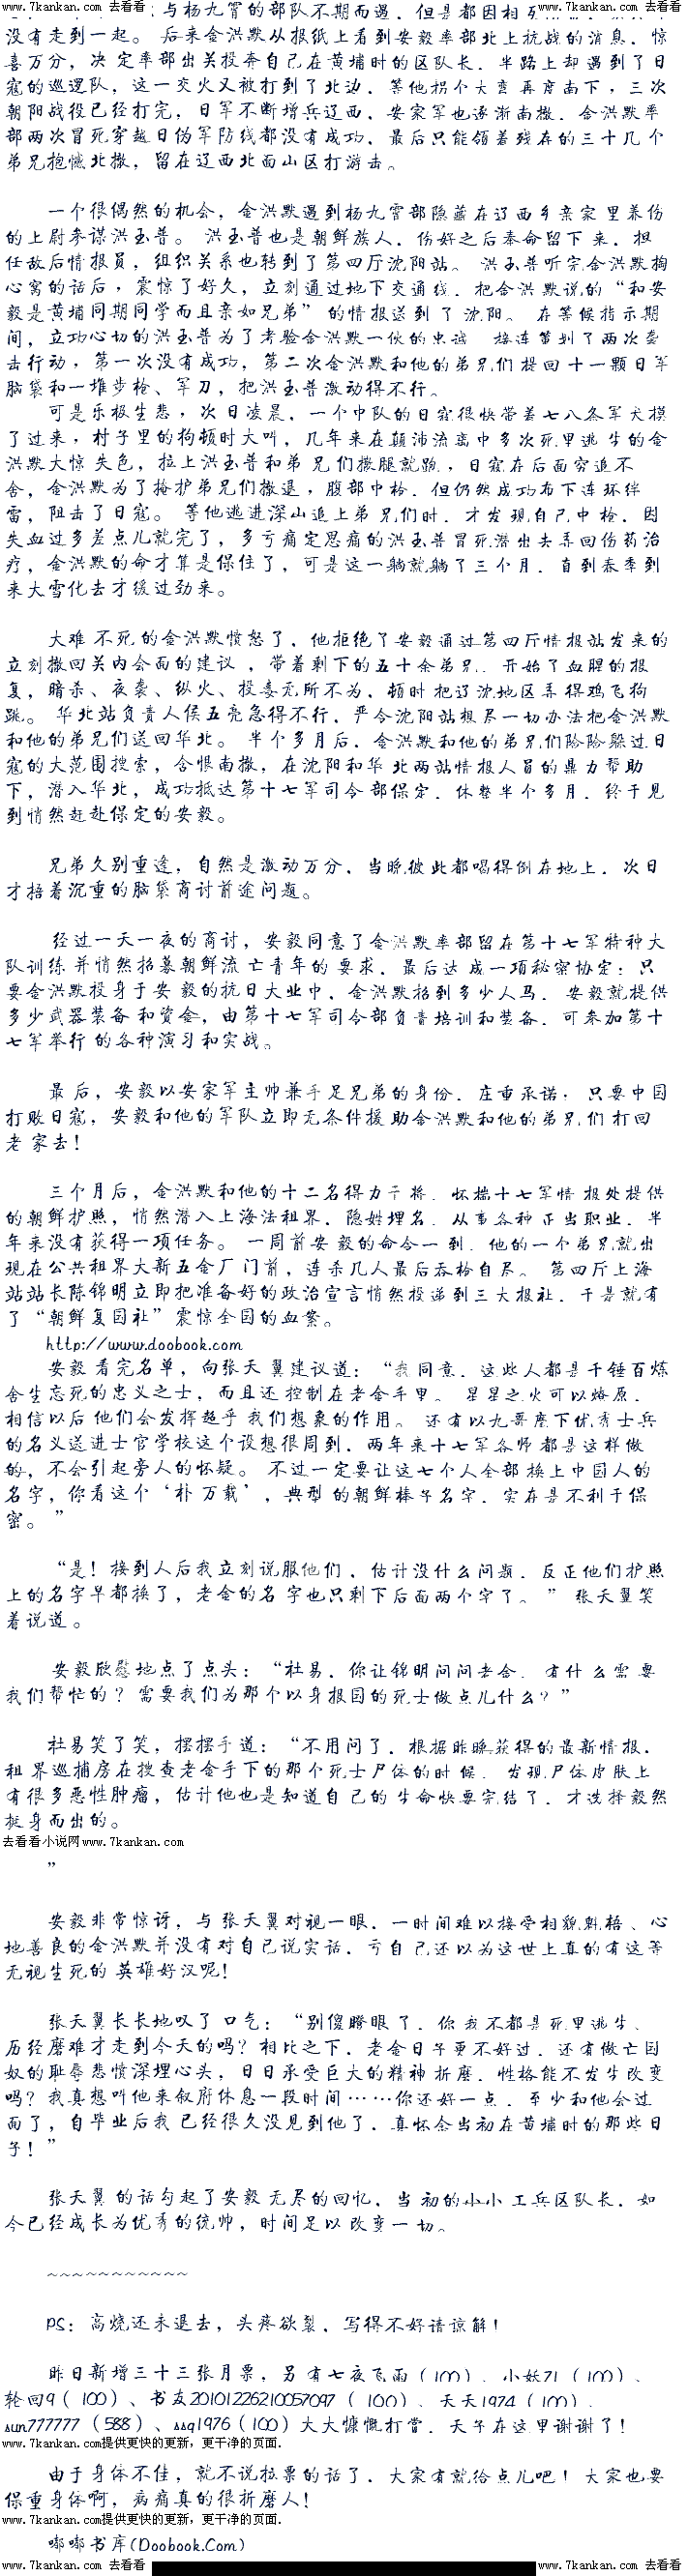 www.7kankan.com 去看看
www.7kankan.com 去看看
与杨九霄的部队不期而遇，但是都因相
没有走到一起。后来金洪默从报纸上看到安毅率部北上抗战的消息，惊
喜万分，决定率部出关投奔自己在黄埔时的区队长，半路上却遇到了日
寇的巡逻队，这一交火又被打到了北边，等他拐个大弯再度南下，三次
朝阳战役已经打完，日军不断增兵辽西，安家军也逐渐南撤，金洪默率
部两次冒死穿越日伪军防线都没有成功，最后只能领着残存的三十几个
弟兄抱憾北撤，留在辽西北面山区打游击。
一个很偶然的机会，金洪默遇到杨九霄部隐藏在辽西乡亲家里养伤
的上尉参谋洪玉普。洪玉普也是朝鲜族人，伤好之后奉命留下来，担
任敌后情报员，组织关系也转到了第四厅沈阳站。洪玉普听完金洪默掏
心窝的话后，震惊了好久，立刻通过地下交通线，把金洪默说的“和安
毅是黄埔同期同学而且亲如兄弟”的情报送到了沈阳。在等候指示期
间，立功心切的洪玉普为了考验金洪默一伙的忠诚，接连策划了两次袭
击行动，第一次没有成功，第二次金洪默和他的弟兄们提回十一颗日军
脑袋和一堆步枪、军刀，把洪玉普激动得不行。
可是乐极生悲，次日凌晨，一个中队的日寇很快带着七八条军犬摸
了过来，村子里的狗顿时大叫，几年来在颠沛流离中多次死里逃生的金
洪默大惊失色，拉上洪玉普和弟兄们撒腿就跑，日寇在后面穷追不
舍，金洪默为了掩护弟兄们撤退，腹部中枪，但仍然成功布下连环绊
雷，阻击了日寇。等他逃进深山追上弟兄们时，才发现自己中枪，因
失血过多差点儿就完了，多亏痛定思痛的洪玉普冒死潜出去弄回伤药治
疗，金洪默的命才算是保住了，可是这一躺就躺了三个月，直到春季到
来大雪化去才缓过劲来。
大难不死的金洪默愤怒了，他拒绝了安毅通过第四厅情报站发来的
立刻撤回关内会面的建议，带着剩下的五十余弟兄，开始了血腥的报
复，暗杀、夜袭、纵火、投毒无所不为，顿时把辽沈地区弄得鸡飞狗
跳。华北站负责人侯五亮急得不行，严令沈阳站想尽一切办法把金洪默
和他的弟兄们送回华北。半个多月后，金洪默和他的弟兄们险险躲过日
寇的大范围搜索，含恨南撤，在沈阳和华北两站情报人员的鼎力帮助
下，潜入华北，成功抵达第十七军司令部保定，休整半个多月，终于见
到悄然赶赴保定的安毅。
兄弟久别重逢，自然是激动万分，当晚彼此都喝得倒在地上，次日
才捂着沉重的脑袋商讨前途问题。
经过一天一夜的商讨，安毅同意了金洪默率部留在第十七军特种大
队训练并悄然招募朝鲜流亡青年的要求，最后达成一项秘密协定：只
要金洪默投身于安毅的抗日大业中，金洪默招到多少人马，安毅就提供
多少武器装备和资金，由第十七军司令部负责培训和装备，可参加第十
七军举行的各种演习和实战。
最后，安毅以安家军主帅兼手足兄弟的身份，庄重承诺：只要中国
打败日寇，安毅和他的军队立即无条件援助金洪默和他的弟兄们打回
老家去！
三个月后，金洪默和他的十二名得力干将，怀揣十七军情报处提供
的朝鲜护照，悄然潜入上海法租界，隐姓埋名，从事各种正当职业，半
年来没有获得一项任务。一周前安毅的命令一到，他的一个弟兄就出
现在公共租界大新五金厂门前，连杀几人最后吞枪自尽。第四厅上海
站站长陈锦明立即把准备好的政治宣言悄然投递到三大报社，于是就有
了“朝鲜复国社”震惊全国的血案。
http://www.doobook.com
安毅看完名单，向张天翼建议道：“我同意，这些人都是千锤百炼
舍生忘死的忠义之士，而且还控制在老金手里。星星之火可以燎原，
相信以后他们会发挥超乎我们想象的作用。还有以九哥麾下优秀士兵
的名义送进士官学校这个设想很周到，两年来十七军各师都是这样做
的，不会引起旁人的怀疑。不过一定要让这七个人全部换上中国人的
名字，你看这个‘朴万载’，典型的朝鲜棒子名字，实在是不利于保
密。”
“是！接到人后我立刻说服他们，估计没什么问题，反正他们护照
上的名字早都换了，老金的名字也只剩下后面两个字了。”张天翼笑
着说道。
安毅欣慰地点了点头：“杜易，你让锦明问问老金，有什么需要
我们帮忙的？需要我们为那个以身报国的死士做点儿什么？”
杜易笑了笑，摆摆手道：“不用问了，根据昨晚获得的最新情报，
租界巡捕房在搜查老金手下的那个死士尸体的时候，发现尸体皮肤上
有很多恶性肿瘤，估计他也是知道自己的生命快要完结了，才选择毅然
挺身而出的。
去看看小说网www.7kankan.com
”
安毅非常惊讶，与张天翼对视一眼，一时间难以接受相貌魁梧、心
地善良的金洪默并没有对自己说实话，亏自己还以为这世上真的有这等
无视生死的英雄好汉呢！
张天翼长长地叹了口气：“别傻瞪眼了，你我不都是死里逃生、
历经磨难才走到今天的吗？相比之下，老金日子更不好过，还有做亡国
奴的耻辱悲愤深埋心头，日日承受巨大的精神折磨，性格能不发生改变
吗？我真想叫他来叙府休息一段时间……你还好一点，至少和他会过
面了，自毕业后我已经很久没见到他了，真怀念当初在黄埔时的那些日
子！”
张天翼的话勾起了安毅无尽的回忆，当初的小小工兵区队长，如
今已经成长为优秀的统帅，时间足以改变一切。
~~~~~~~~~~~
PS：高烧还未退去，头疼欲裂，写得不好请谅解！
昨日新增三十三张月票，另有七夜飞雨（100）、小妖71（100）、
轮回9（100）、书友20101226210057097（100）、天天1974（100）、
sun777777（588）、ssq1976（100）大大慷慨打赏，天子在这里谢谢了！
www.7kankan.com提供更快的更新，更干净的页面.
由于身体不佳，就不说拉票的话了，大家有就给点儿吧！大家也要
保重身体啊，病痛真的很折磨人！
www.7kankan.com提供更快的更新，更干净的页面.
嘟嘟书库(Doobook.Com)
www.7kankan.com 去看看
www.7kankan.com 去看看